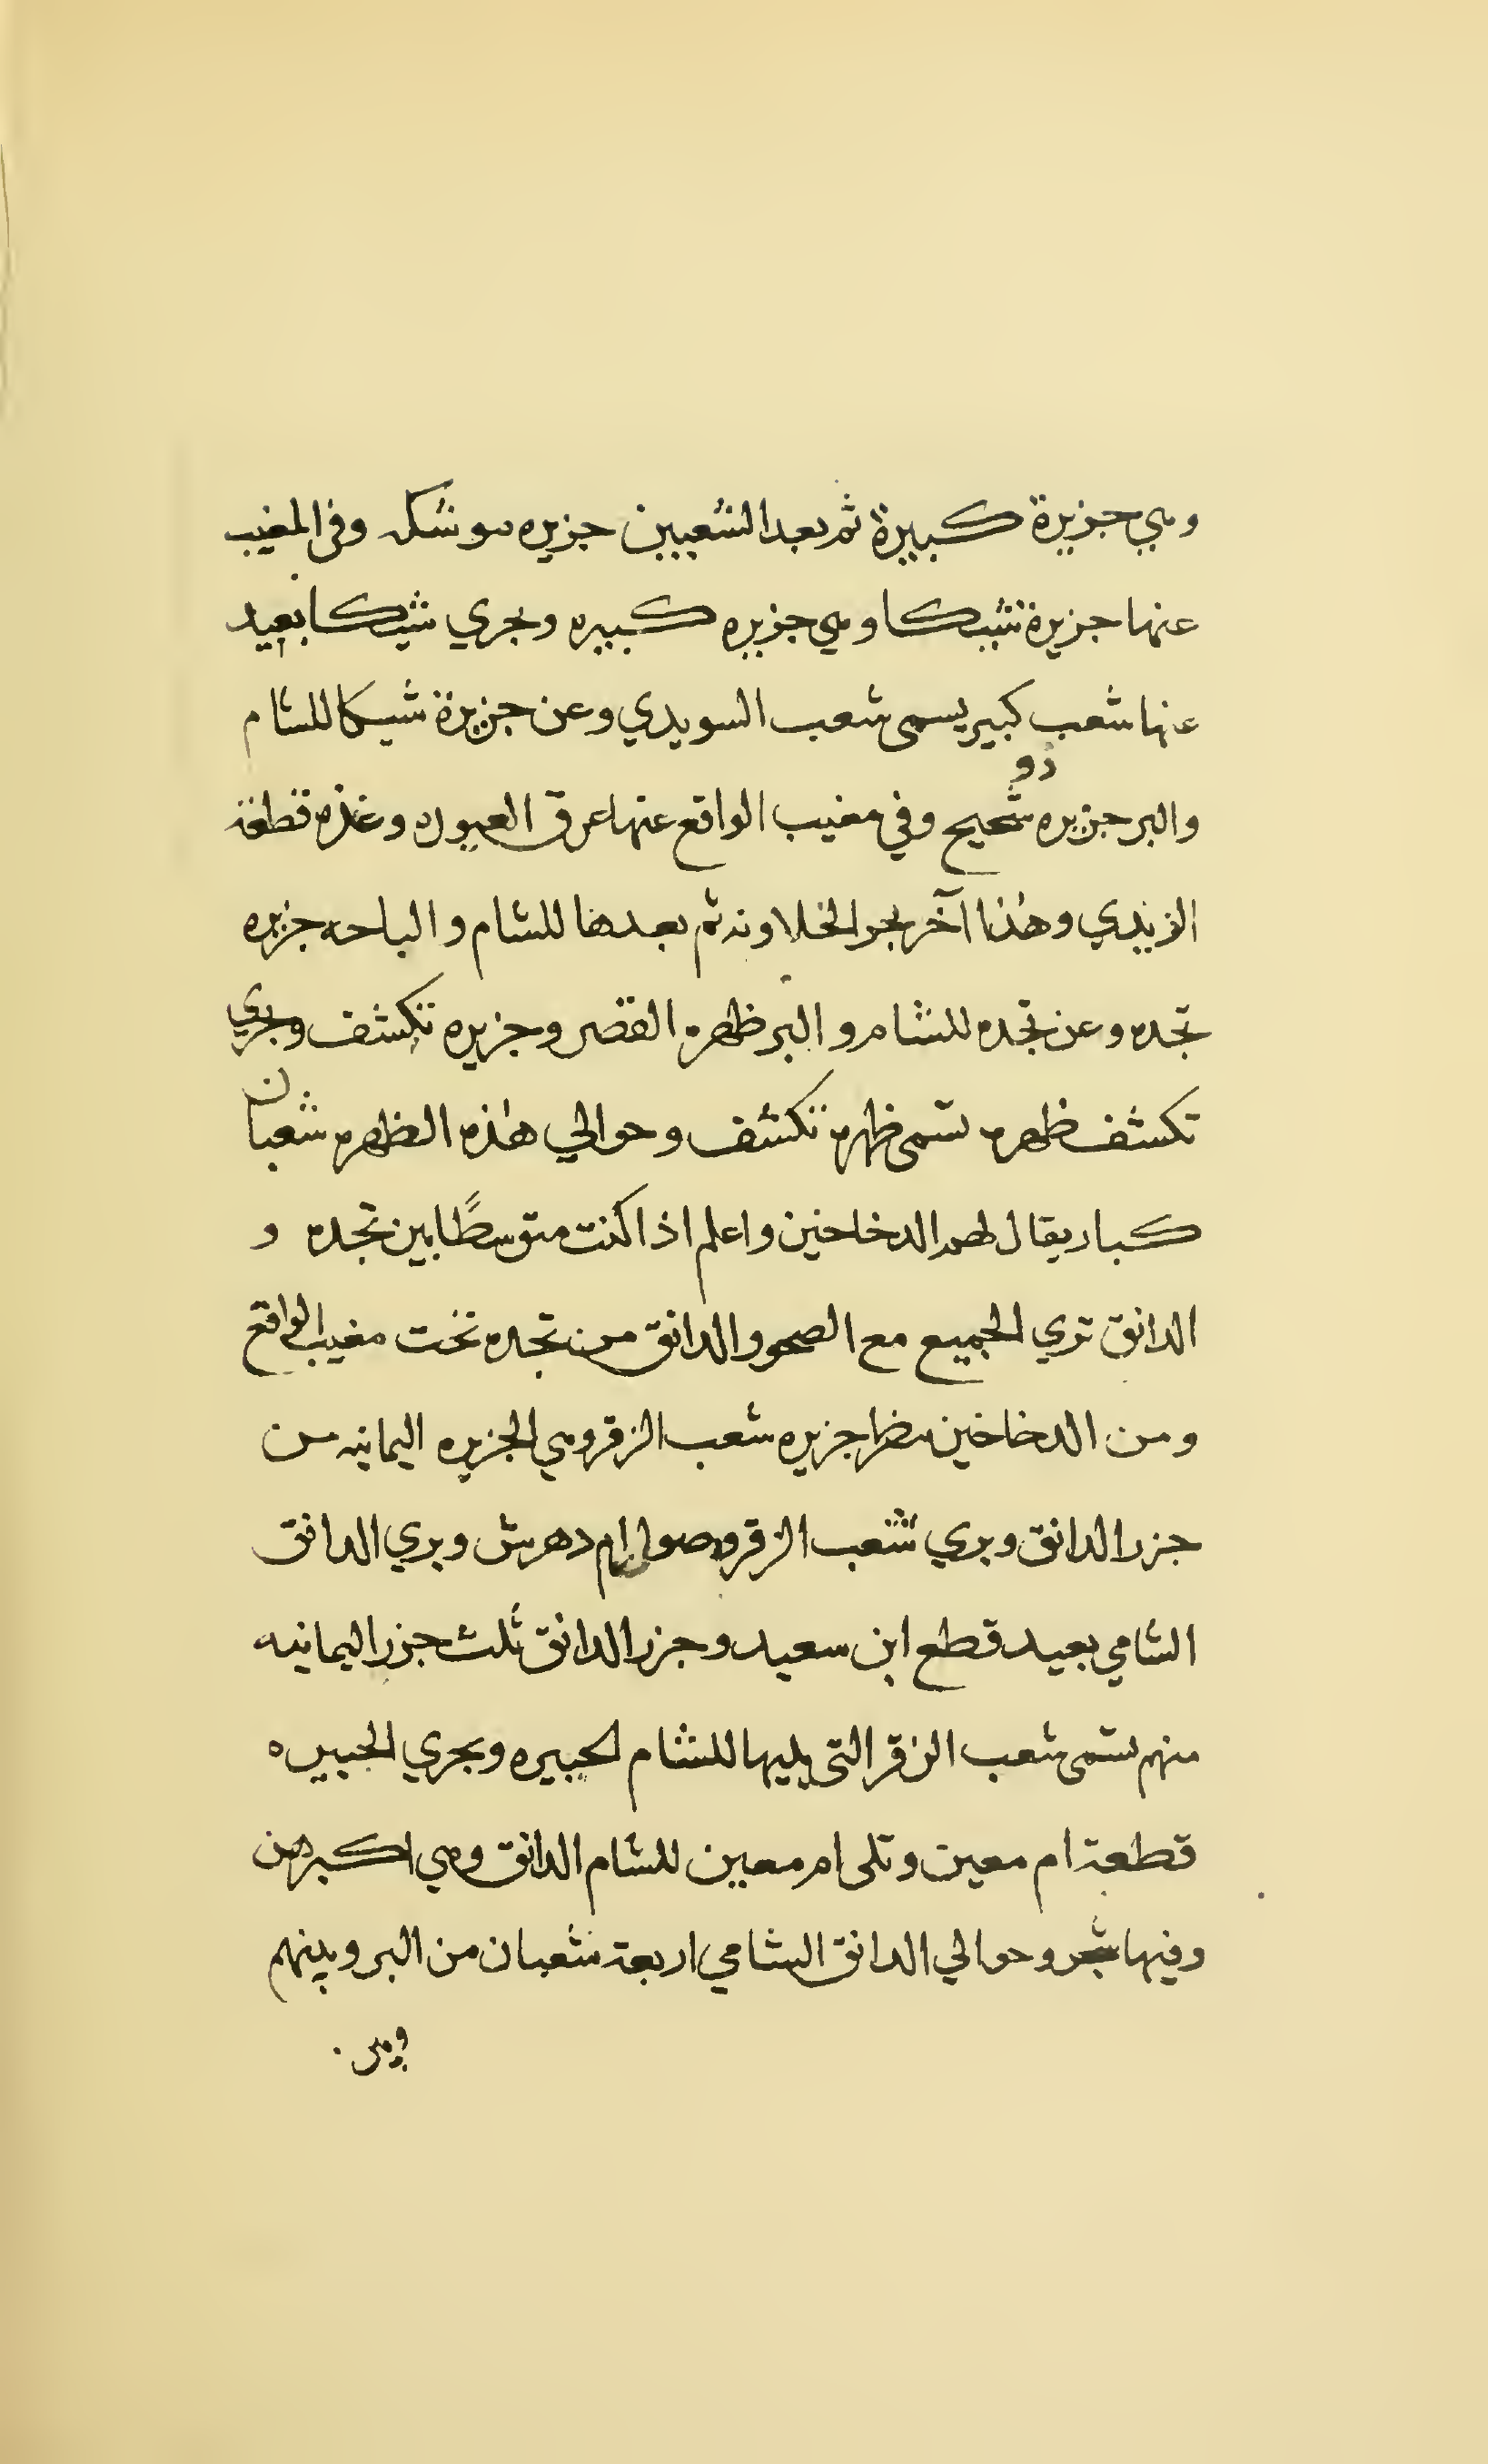 وهي جزيرة كبيرة ثم بعد الشعبين جزيره سوشكه وفى المغيب
عنها جزيرة شبكا وهي جزيره كبيره وبحري شيكا بعيد
عنها شعب كبير يسمى شعب السويدي وعن جزيرة شيكا للشام
ذو
والبر جزيره شحيح وفي مغيب الواقع عنها عرق العبوله وغذه قطعة
الزيدي وهذا آخر بحر الخلاونه ثم بعدها للشام والباحه جزيره
تجده وعن تجده للشام والبر ظهره القصر وجزيره تكشف وبحري
تكشف ظهره تسمى ظهرة تكشف وحوالي هذه الظهره شعبان
كبار يقال لهم الدخاخين واعلم اذا كنت متوسطًا بين تجده و
الدانق تري الجميع مع الصحو والدانق من تجده تحت مغيب الواقع
ومن الدخاخين جزيره شعب الزقر وهي الجزيره اليمانيه من
جزر الدانق وبري شعب الزقر ام دهرش وبري الدانق
الشامي بعيد قطع ابن سعيد وجزر الدانق ثلث جزر اليمانيه
منهم تسمى شعب الزقر التى يليها للشام لحبيره وبحري الجبيره
قطعة ام معين وتلى ام معين للشام الدانق وهي اكبرهن
وفيها شجر وحوالي الدانق الشامي اربعة شعبان من البر وبينهم
وبين